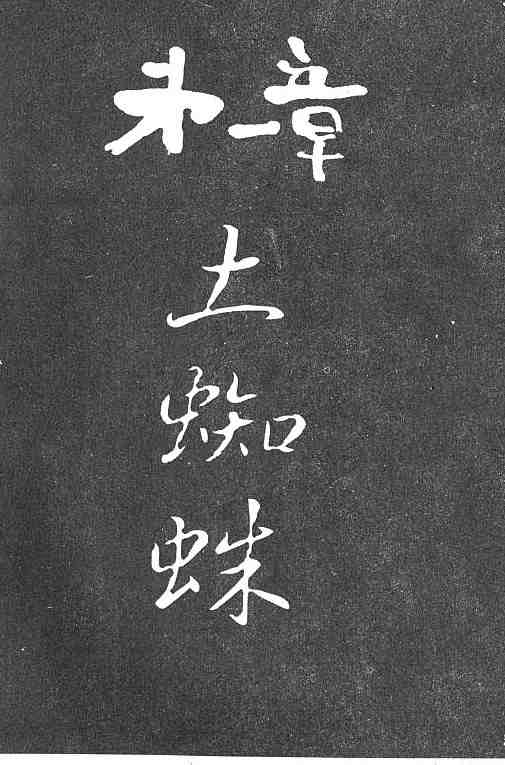 第一章
土
蜘
蛛